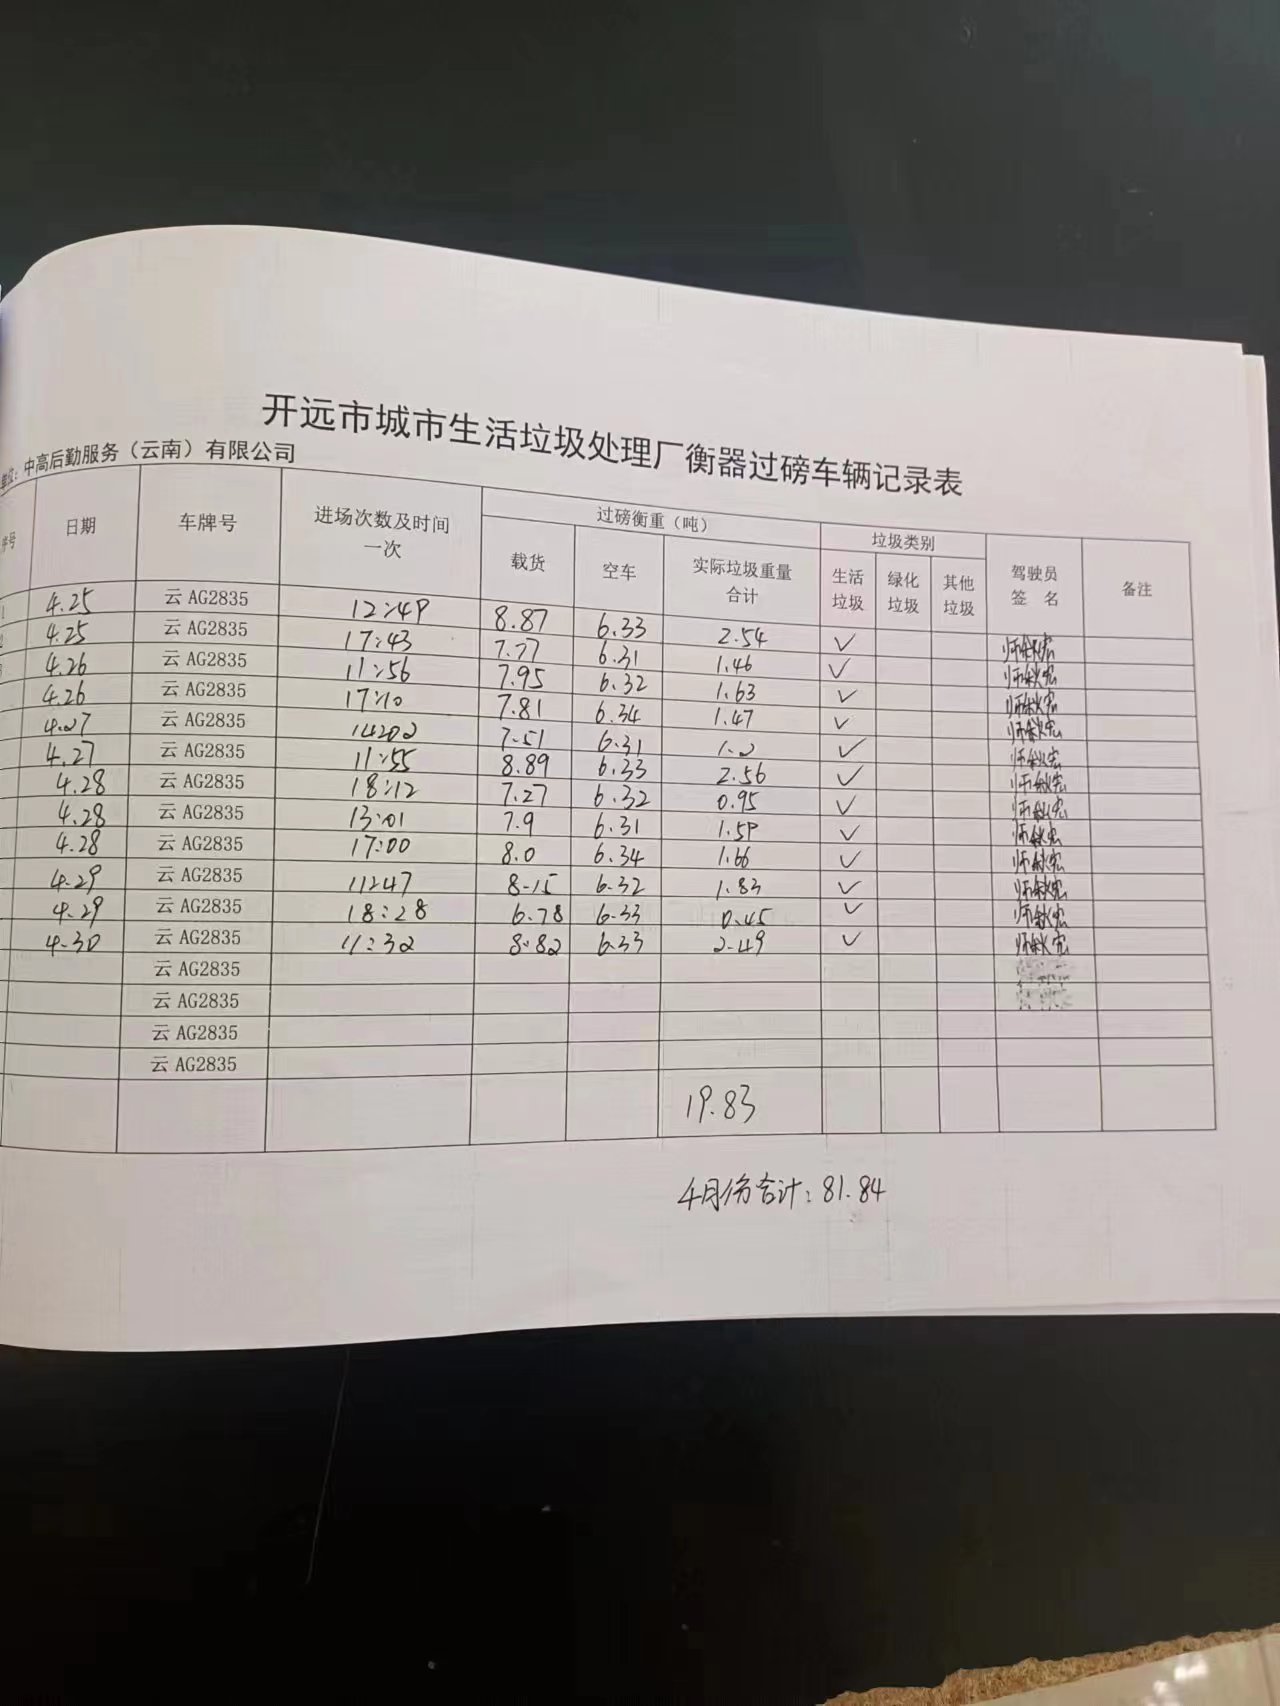 开远市城市生活垃圾处理厂衡器过磅车辆记录表
单位：中高后勤服务（云南）有限公司
序号 日期 车牌号 进场次数及时间 一次 过磅衡重（吨） 载货 空车 实际垃圾重量 合计 垃圾类别 生活垃圾 绿化垃圾 其他垃圾 驾驶员 签 名 备注
1 4.25 云 AG2835 12:49 8.87 6.33 2.54 ✓
2 4.25 云 AG2835 17:43 7.77 6.31 1.46 ✓
3 4.26 云 AG2835 11:56 7.95 6.32 1.63 ✓
4.26 云 AG2835 17:10 7.81 6.34 1.47 ✓
4.27 云 AG2835 14:02 7.51 6.31 1.2 ✓
4.27 云 AG2835 11:55 8.89 6.33 2.56 ✓
4.28 云 AG2835 18:12 7.27 6.32 0.95 ✓
4.28 云 AG2835 13:01 7.9 6.31 1.59 ✓
4.28 云 AG2835 17:00 8.0 6.34 1.66 ✓
4.29 云 AG2835 11:47 8.15 6.32 1.83 ✓
4.29 云 AG2835 18:28 6.78 6.33 0.45 ✓
4.30 云 AG2835 11:32 8.82 6.33 2.49 ✓
云 AG2835
云 AG2835
云 AG2835
云 AG2835
19.83
4月份合计：81.84